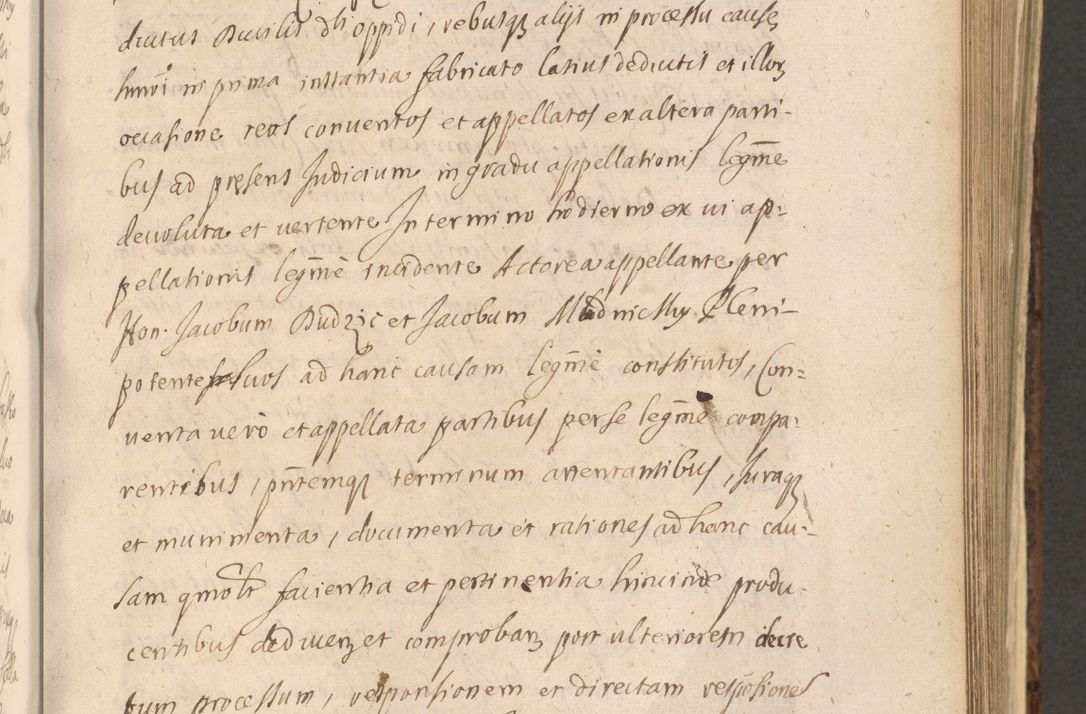 ducatus Ducilis dh oppidi, rebusqȝ alijs in processu causę
hmoi in prima instantia fabricato latius deductis et illorȝ
occasione reos conventos et appellatos ex altera parti-
bus ad pręsens Judicium in gradu appellationis legme
devoluta et vertente In termino hodierno ex vi ap=
pellationis legme incidente Actorea appellante per
Hon. Jacobum Dudzic et Jacobum Mladnicky Pleni-
potentes suos ad hanc causam legme constitutos, Con=
venta vero et appellata partibus per se legme compa=
rentibus, pntemqȝ terminum attentantibus, Juraqȝ
et munimenta, documenta et rationes ad hanc cau=
sam qmolt facientia et pertinentia hincinde produ
centibus deducenȝ et comprobanȝ post ulteriorem decre
tum processum, responsionem et directam responsiones